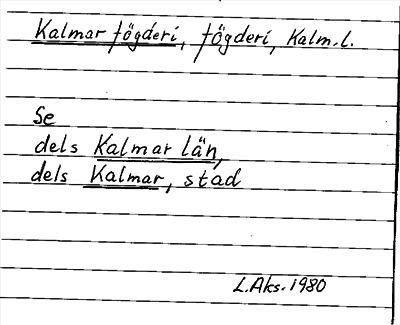 Kalmar fögderi, fögderi, Kalm.l.
Se
dels Kalmar län,
dels Kalmar, stad
L.Aks. 1980